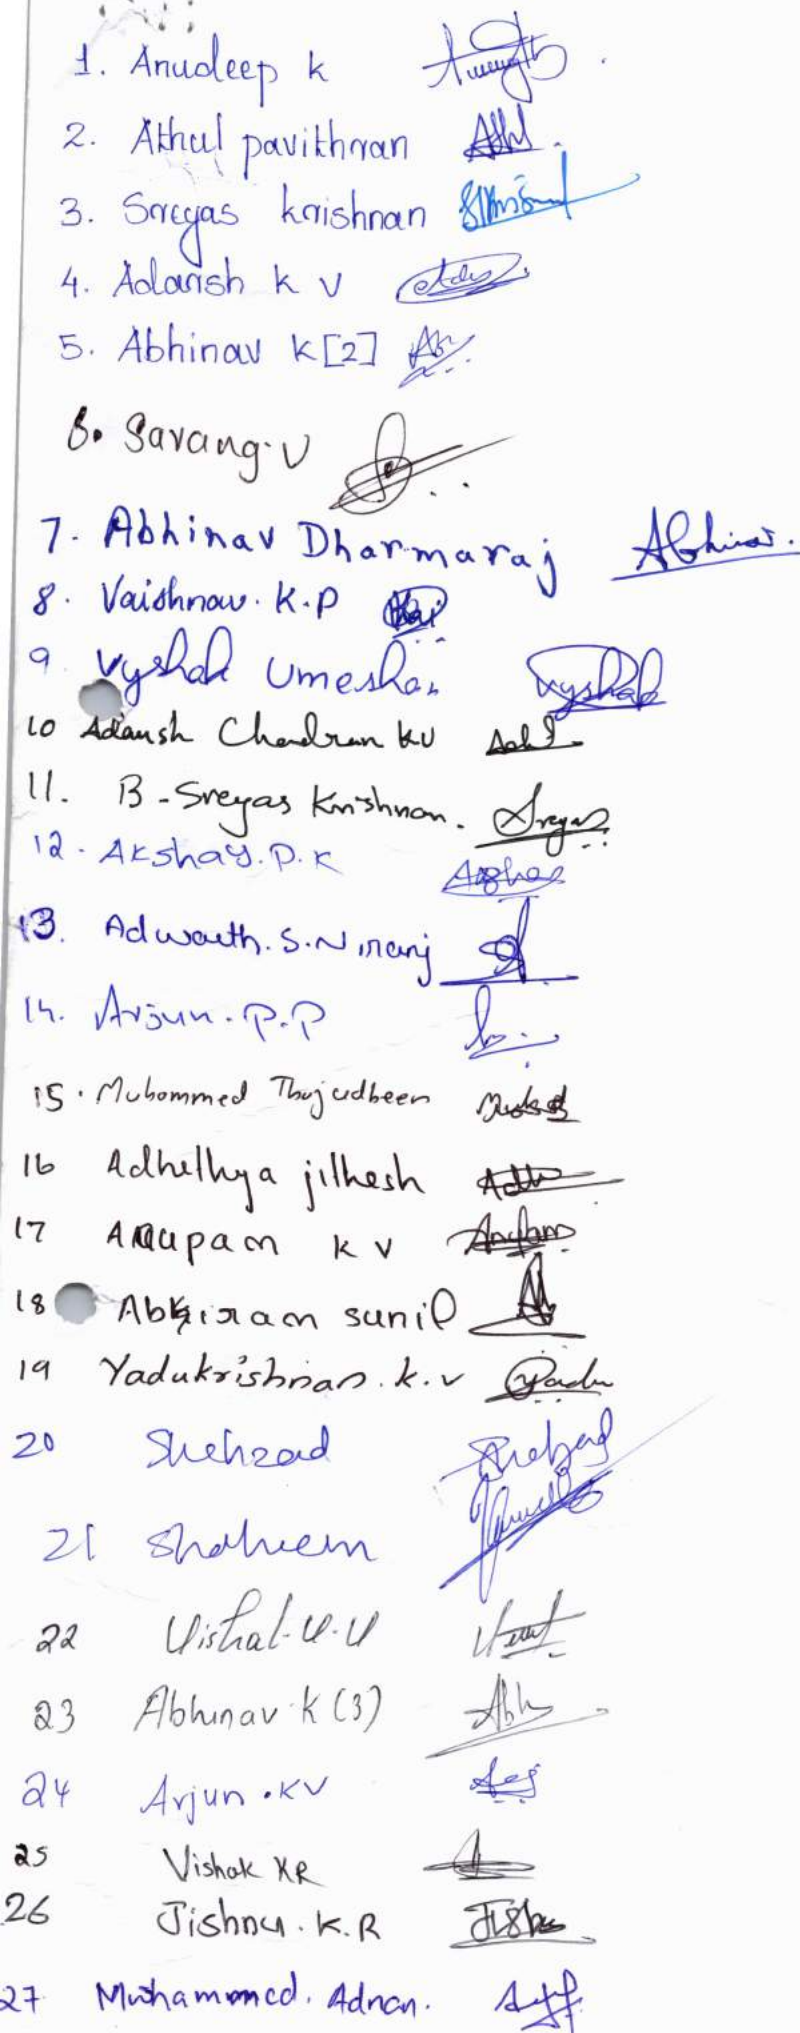 1. Anudeep K
2. Athul pavithran Athul.
3. Sreyas krishnan
4. Adarsh K V
5. Abhinav K[2]
6. Sarang. V
7. Abhinav Dharmaraj Abhinav.
8. Vaishnav. K.P
9 Vyshak Umeshan Vyshak
10 Adarsh Chandran KV
11. B - Sreyas Krishnan. Sreyas
12. Akshay. P. K
13. Adwaith. S. Niranj
14. Arjun. P.P
15. Muhammed Thajudheen
16 Adhithya jithesh
17 Anupam K V Anupam
18 Abhiram sunil
19 Yadukrishnan. k. v Yadu
20 Shehzad Shehzad
21 Shaheem
22 Vishal. V. V
23 Abhinav K (3) Abh
24 Arjun . KV
25 Vishak KR
26 Jishnu. K. R
27 Muhammed. Adnan.